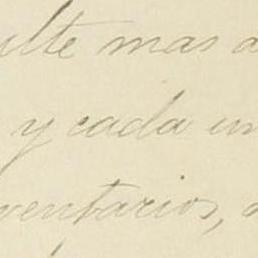 ulte mas a
y cada un
ventarios,